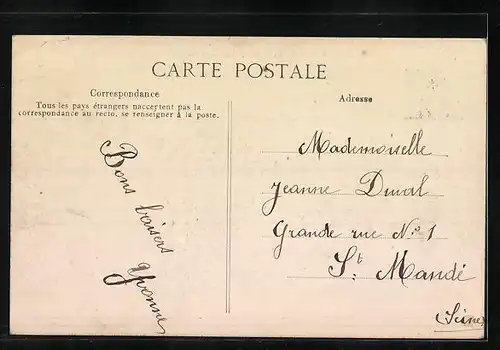 CARTE POSTALE
Correspondance
Tous les pays étrangers n'acceptent pas la
correspondance au recto, se renseigner à la poste.
Bons baisers
Yvonne
Adresse
Mademoiselle
Jeanne Duval
Grande rue No 1
St. Mandé
(Seine)